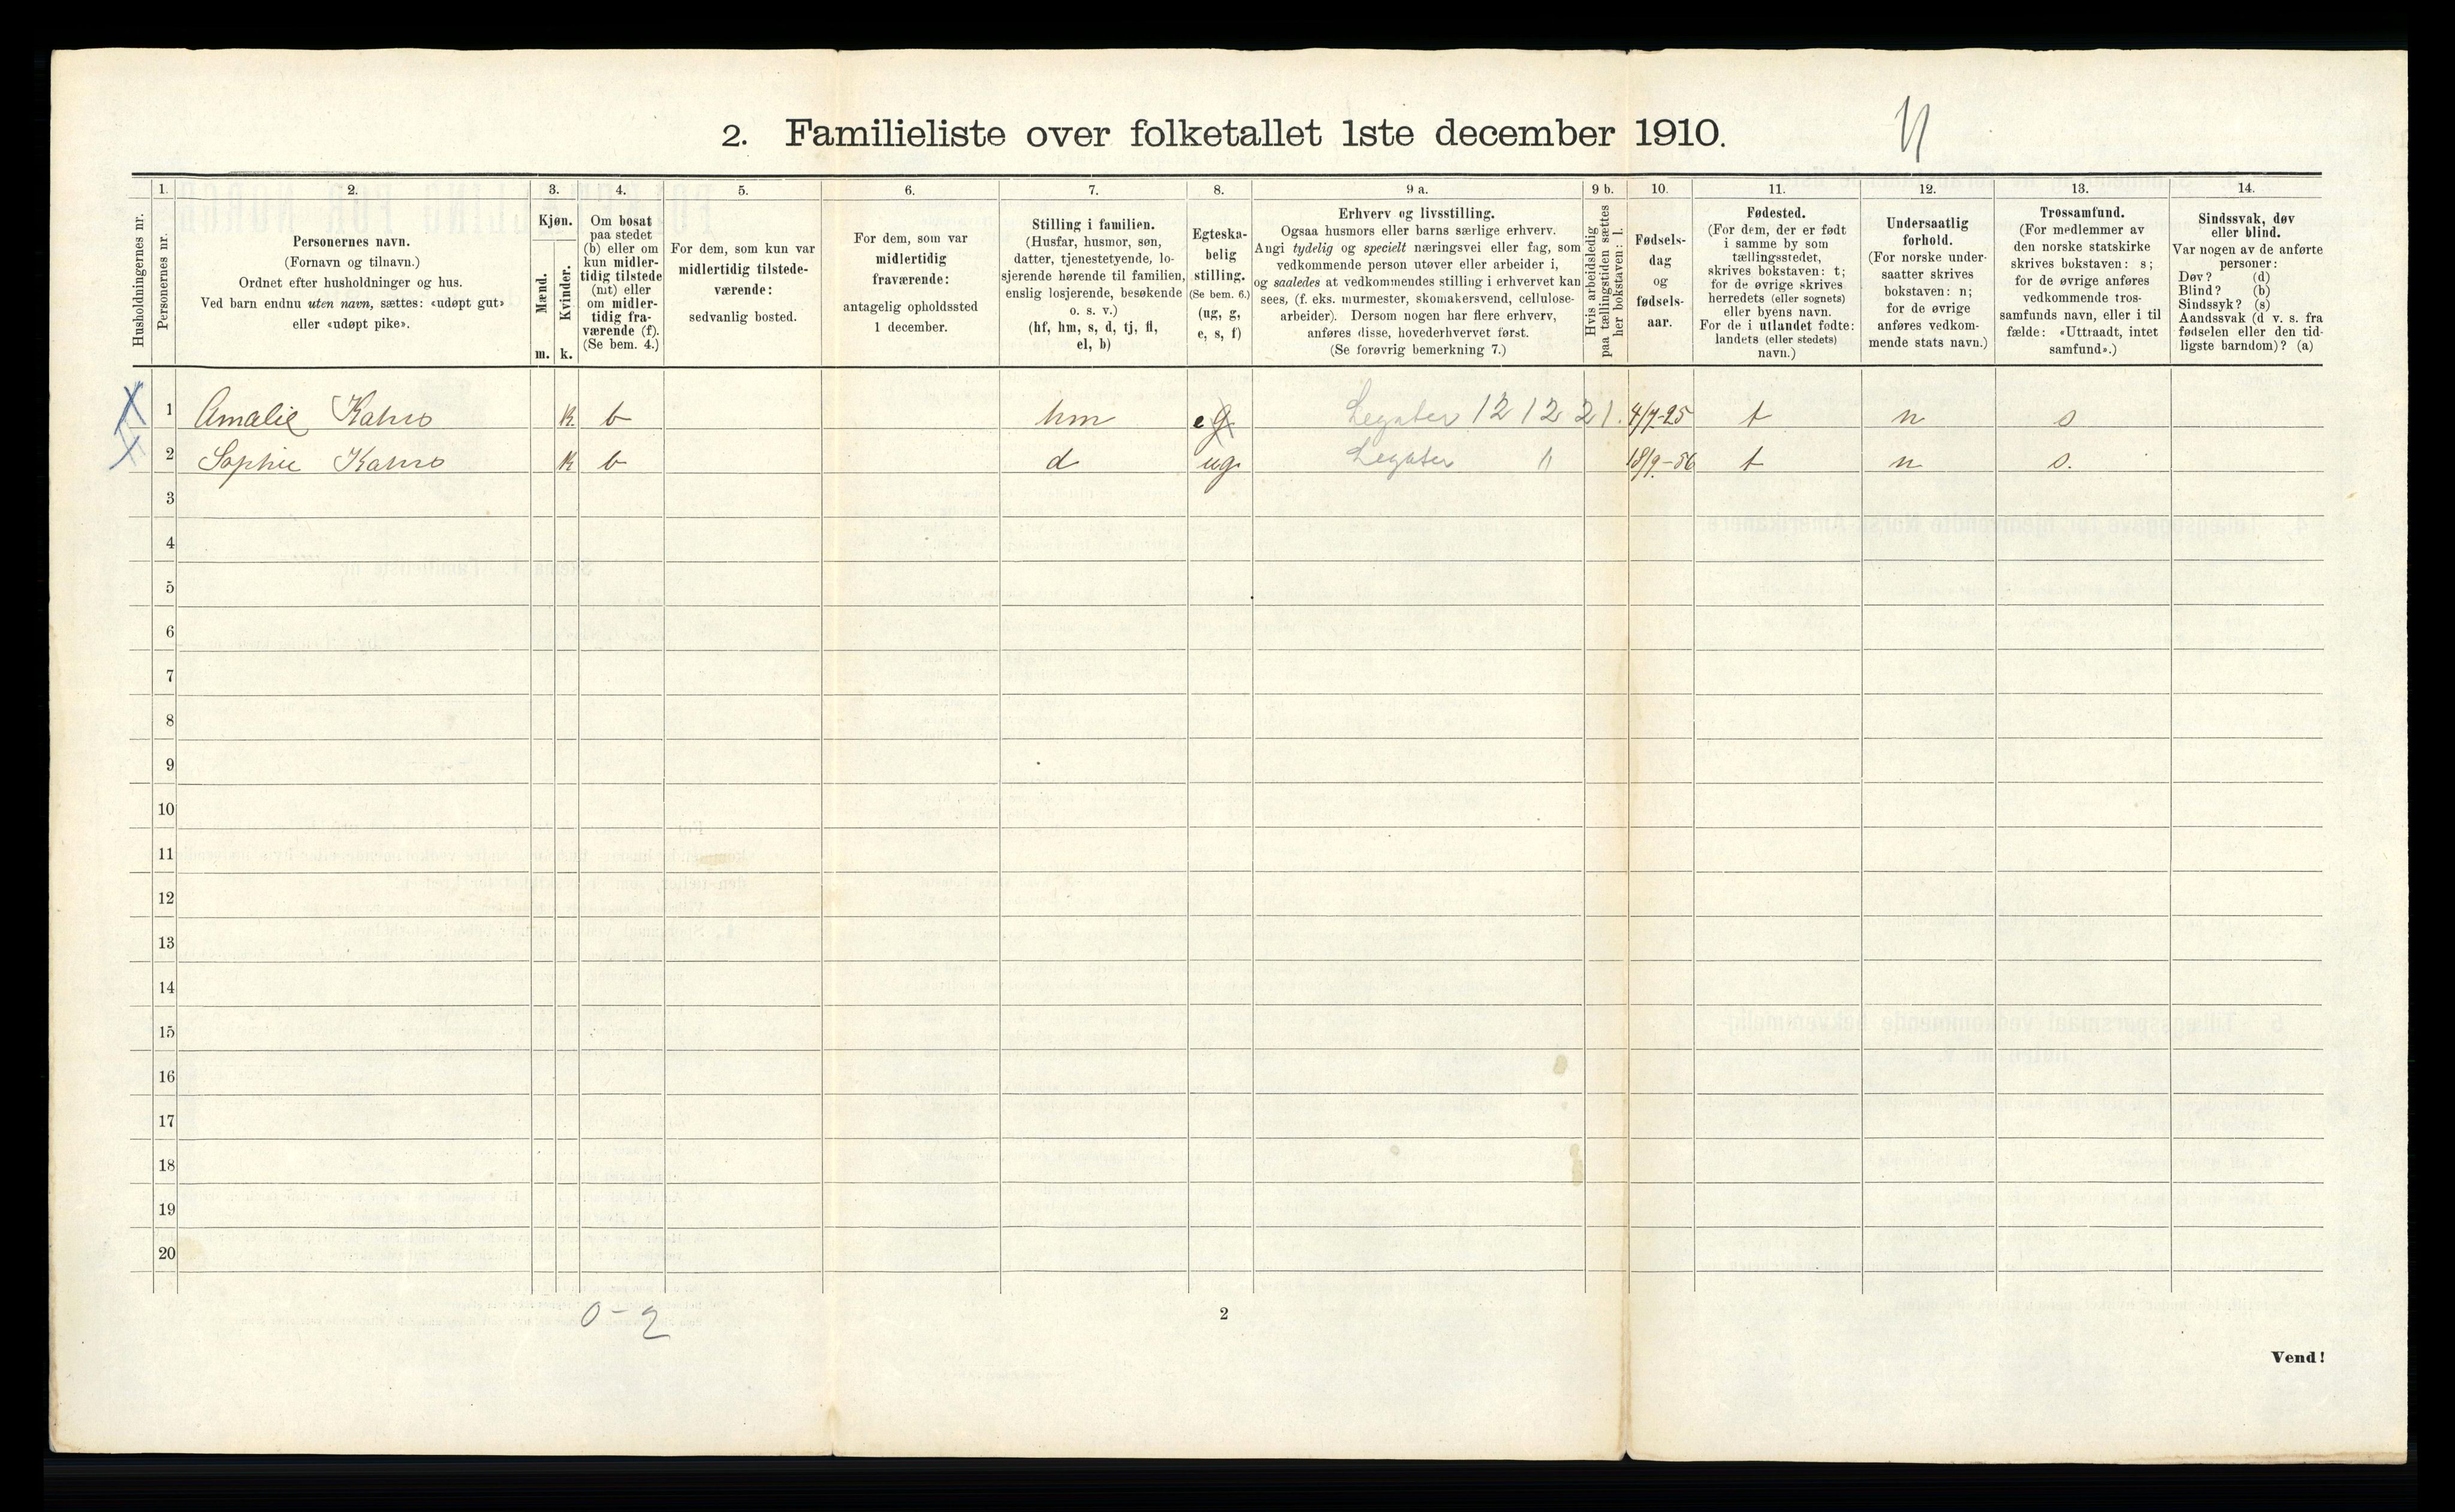 2. Familieliste over folketallet 1ste december 1910.
Husholdningernes nr.
1. Personernes nr.
2. Personernes navn.
(Fornavn og tilnavn.)
Ordnet efter husholdninger og hus.
Ved barn endnu uten navn, sættes: «udøpt gut»
eller «udøpt pike».
3. Kjøn.
Mænd. m.
Kvinder. k.
4. Om bosat
paa stedet
(b) eller om
kun midler-
tidig tilstede
(mt) eller
om midler-
tidig fra-
værende (f).
(Se bem. 4.)
5. For dem, som kun var
midlertidig tilstede-
værende:
sedvanlig bosted.
6. For dem, som var
midlertidig
fraværende:
antagelig opholdssted
1 december.
7. Stilling i familien.
(Husfar, husmor, søn,
datter, tjenestetyende, lo-
sjerende hørende til familien,
enslig losjerende, besøkende
o. s. v.)
(hf, hm, s, d, tj, fl,
el, b)
8. Egteska-
belig
stilling.
(Se bem. 6.)
(ug, g,
e, s, f)
9 a. Erhverv og livsstilling.
Ogsaa husmors eller barns særlige erhverv.
Angi tydelig og specielt næringsvei eller fag, som
vedkommende person utøver eller arbeider i,
og saaledes at vedkommendes stilling i erhvervet kan
sees, (f. eks. murmester, skomakersvend, cellulose-
arbeider). Dersom nogen har flere erhverv,
anføres disse, hovederhvervet først.
(Se forøvrig bemerkning 7.)
9 b. Hvis arbeidsledig
paa tællingstiden sættes
her bokstaven: l.
10. Fødsels-
dag
og
fødsels-
aar.
11. Fødested.
(For dem, der er født
i samme by som
tællingsstedet,
skrives bokstaven: t;
for de øvrige skrives
herredets (eller sognets)
eller byens navn.
For de i utlandet fødte:
landets (eller stedets)
navn.)
12. Undersaatlig
forhold.
(For norske under-
saatter skrives
bokstaven: n;
for de øvrige
anføres vedkom-
mende stats navn.)
13. Trossamfund.
(For medlemmer av
den norske statskirke
skrives bokstaven: s;
for de øvrige anføres
vedkommende tros-
samfunds navn, eller i til
fælde: «Uttraadt, intet
samfund».)
14. Sindssvak, døv
eller blind.
Var nogen av de anførte
personer:
Døv? (d)
Blind? (b)
Sindssyk? (s)
Aandssvak (d v. s. fra
fødselen eller den tid-
ligste barndom)? (a)
1 Amalie Kahrs k. b hm e g Legater 12 12 21. 4/7-25 t n s
2 Sophie Kahrs k b d ug. Legater 11 18/9-56 t n s.
3
4
5
6
7
8
9
10
11
12
13
14
15
16
17
18
19
20
0-2
2
Vend!